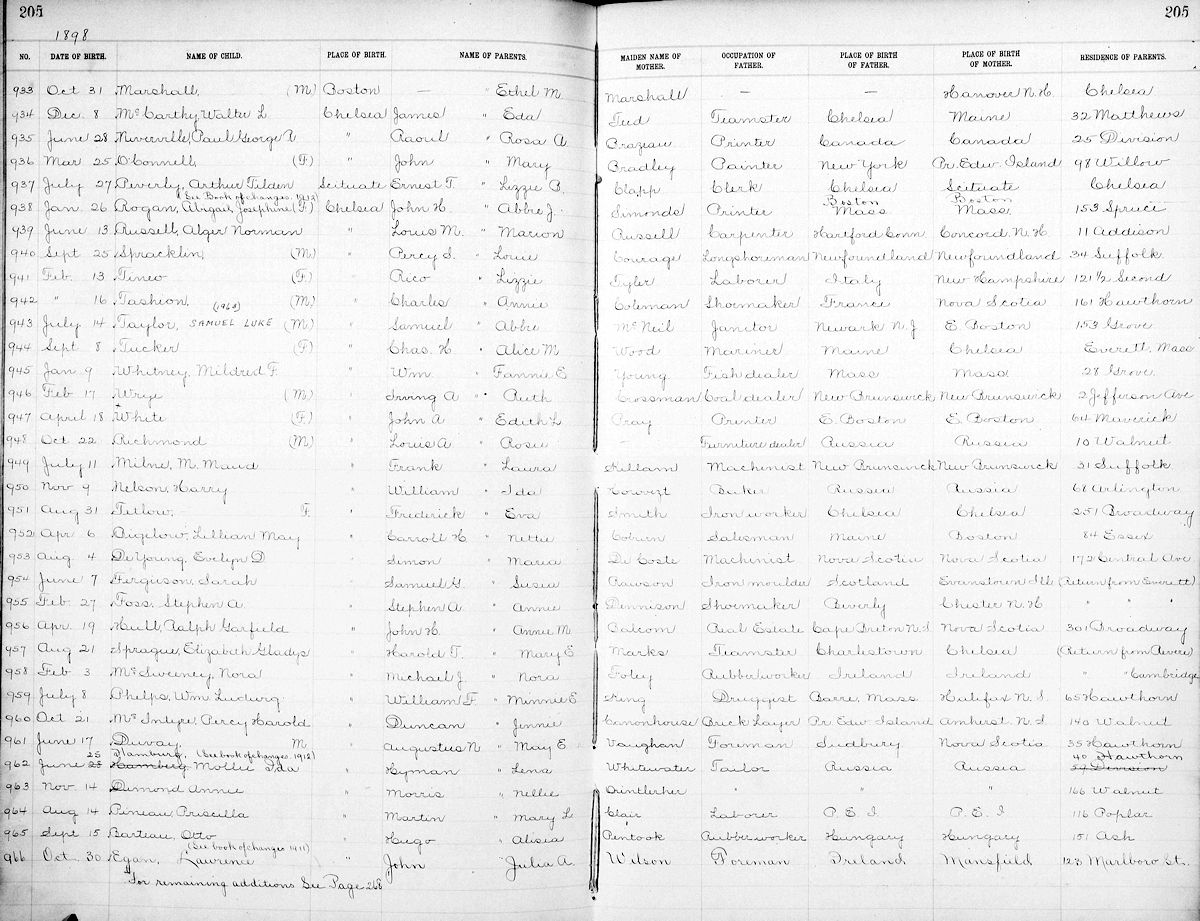 205 205
1898
NO. DATE OF BIRTH. NAME OF CHILD. PLACE OF BIRTH. NAME OF PARENTS. MAIDEN NAME OF MOTHER. OCCUPATION OF FATHER. PLACE OF BIRTH OF FATHER. PLACE OF BIRTH OF MOTHER. RESIDENCE OF PARENTS.
933 Oct 31 Marshall, (M) Boston — " Ethel M. Marshall — — Hanover N.H. Chelsea
934 Dec. 8 McCarthy Walter L Chelsea James " Eda Teed Teamster Chelsea Maine 32 Matthews
935 June 28 Niverville, Paul George A " Raoul " Rosa A Brazeau Printer Canada Canada 25 Division
936 Mar 25 O'Connell, (F.) " John " Mary Bradley Painter New York Pr. Edw. Island 98 Willow
937 July 27 Peverly, Arthur Tilden Scituate Ernest T. " Lizzie B. Clapp Clerk Chelsea Scituate Chelsea
(See Book of changes. 1912) Boston Boston
938 Jan. 26 Rogan, Abigail Josephine (F) Chelsea John H. " Abbie J. Simonds Printer Mass Mass. 153 Spruce
939 June 13 Russell, Alger Norman " Louis M. " Marion Russell Carpenter Hartford Conn Concord. N.H. 11 Addison
940 Sept 25 Spracklin, (M.) " Percy S. " Louie Courage Longshoreman Newfoundland Newfoundland 34 Suffolk
941 Feb. 13 Tineo (F.) " Rico " Lizzie Tyler Laborer Italy New Hampshire 121 1/2 Second
942 " 16 Tashion, (M.) " Charles " Annie Coleman Shoemaker France Nova Scotia 161 Hawthorn
(1963)
943 July 14 Taylor, SAMUEL LUKE (M.) " Samuel " Abbie McNeil Janitor Newark N.J E. Boston 153 Grove
944 Sept 8 Tucker (F) " Chas. H " Alice M Wood Mariner Maine Chelsea Everett, Mass
945 Jan 9 Whitney, Mildred F. " Wm. " Fannie E Young Fish dealer Mass Mass 28 Grove
946 Feb 17 Wrye (M.) " Irving A " Ruth Crossman Coal dealer New Brunswick New Brunswick 2 Jefferson Ave
947 April 18 White (F.) " John A " Edith L Pray Printer E. Boston E. Boston 64 Maverick
948 Oct 22 Richmond (M) " Louis A " Rosie — Furniture dealer Russia Russia 10 Walnut
949 July 11 Milne, M. Maud " Frank " Laura Killam Machinist New Brunswick New Brunswick 31 Suffolk
950 Nov 9 Nelson, Harry " William " Ida Baker Russia Russia 68 Arlington
951 Aug 31 F. " Frederick " Eva Smith Iron worker Chelsea Chelsea 251 Broadway
952 Apr 6 Bigelow, Lillian May " Carroll H " Nettie Coburn Salesman Maine Boston 84 Essex
953 Aug. 4 De Young, Evelyn D " Simon " Maria De Coste Machinist Nova Scotia Nova Scotia 172 Central Ave
954 June 7 Ferguson, Sarah " Samuel G. " Susie Rawson Iron moulder Scotland Evanstown Ill (Return from Everett)
955 Feb. 27 Foss, Stephen A. " Stephen A " Annie Dennison Shoemaker Beverly Chester N.H " " "
956 Apr. 19 Hull, Ralph Garfield " John H. " Annie M Balcom Real Estate Cape Breton N.S Nova Scotia 301 Broadway
957 Aug 21 Sprague, Elizabeth Gladys " Harold T. " Mary E Marks Teamster Charlestown Chelsea (Return from Revere)
958 Feb 3 McSweeney, Nora " Michael J. " Nora Foley Rubberworker Ireland Ireland " " Cambridge
959 July 8 Phelps, Wm Ludwig " William F. " Minnie E King Druggist Barre, Mass Halifax N.S. 65 Hawthorn
960 Oct 21 McIntyre, Percy Harold " Duncan " Jennie Canonhouse Brick Layer Pr Edw Island Amherst. N.S 140 Walnut
961 June 17 Duvay M " Augustus N " May E Vaughan Foreman Sudbury Nova Scotia 35 Hawthorn
25 Hamburg, (See book of changes 1912) 40 Hawthorn
962 June 25 Hamberg Mollie Ida " Hyman " Lena Whitewater Tailor Russia Russia 59 Division
963 Nov. 14 Dimond Annie " Morris " Nellie " " " 166 Walnut
964 Aug 14 Pineau Priscilla " Martin " Mary L Clair Laborer P.E.I P.E.I 116 Poplar
965 Sept 15 Barteau, Otto " Hugo " Alisia Pentook Rubberworker Hungary Hungary 151 Ash
(See book of changes 1911)
966 Oct. 30 Egan, Lawrence " John " Julia A Wilson Foreman Ireland Mansfield 123 Marlboro St.
For remaining additions See Page 268